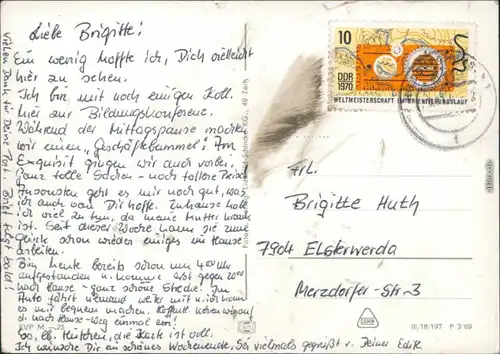 Liebe Brigitte!
Ein wenig hoffte ich, Dich vielleicht
hier zu sehen.
Ich bin mit noch einigen Koll.
hier zur Bildungskonferenz.
Während der Mittagspause machten
wir einen „Geschäftebummel“! Im
Exquisit gingen wir auch vorbei.
Ganz tolle Sachen - noch tollere Preise!
Ansonsten geht es mir noch gut, was
ich auch von Dir hoffe. Zuhause habe
ich viel zu tun, da meine Mutter krank
ist. Seit dieser Woche kann sie zum
Glück schon wieder einiges im Hause
arbeiten.
Bin heute bereits schon um 4 00 Uhr
aufgestanden u. komme erst gegen 20 00
nach Hause - ganz schöne Strecke! Im
Auto fährt jemand weiter mit u. ich kann
es mir bequem machen.
d. nach Hause-Weg einmal ein!
So, lb. die Karte ist voll.
Ich wünsche Dir ein schönes Wochenende. Sei vielmals gegrüßt v. Deiner Edith
Vielen Dank für Deine Post. Brief folgt bald!
EVP M -,25
10
DDR
1970
WELTMEISTERSCHAFT IM ORIENTIERUNGSLAUF
Frl.
Brigitte Huth
7904 Elsterwerda
Merzdorfer-Str. 3
III/18/197 P 3/69